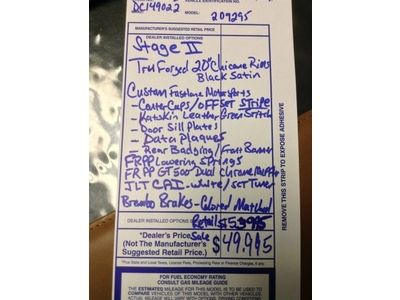 VEHICLE IDENTIFICATION NO.
DC149022
MODEL: 209295
MANUFACTURER'S SUGGESTED RETAIL PRICE
DEALER INSTALLED OPTIONS
Stage II
TruForged 20" Chicane Rims
Black Satin
Custom Fastlane Motorsports
- Center Caps / OFFSET STRIPE
- Katskin Leather Green Stitch
- Door Sill Plates
- Data Plaques
- Rear Badging / Front Banner
FRPP Lowering Springs
FRPP GT500 Dual Chrome
JLT CAI - white / SCT Tuner
Brembo Brakes - Colored Matched
DEALER INSTALLED OPTIONS Retail $53995
"Dealer's Price Sale $49,995
(Not The Manufacturer's
Suggested Retail Price.)
*Plus State and Local Taxes, License Fees, Processing Fees or Finance Charges, if any.
FOR FUEL ECONOMY RATING
CONSULT GAS MILEAGE GUIDE
THE ESTIMATED MILEAGE FOR THIS MODEL IS TO BE USED TO
COMPARE VEHICLES OF THIS MODEL WITH OTHER VEHICLES.
REMOVE THIS STRIP TO EXPOSE ADHESIVE